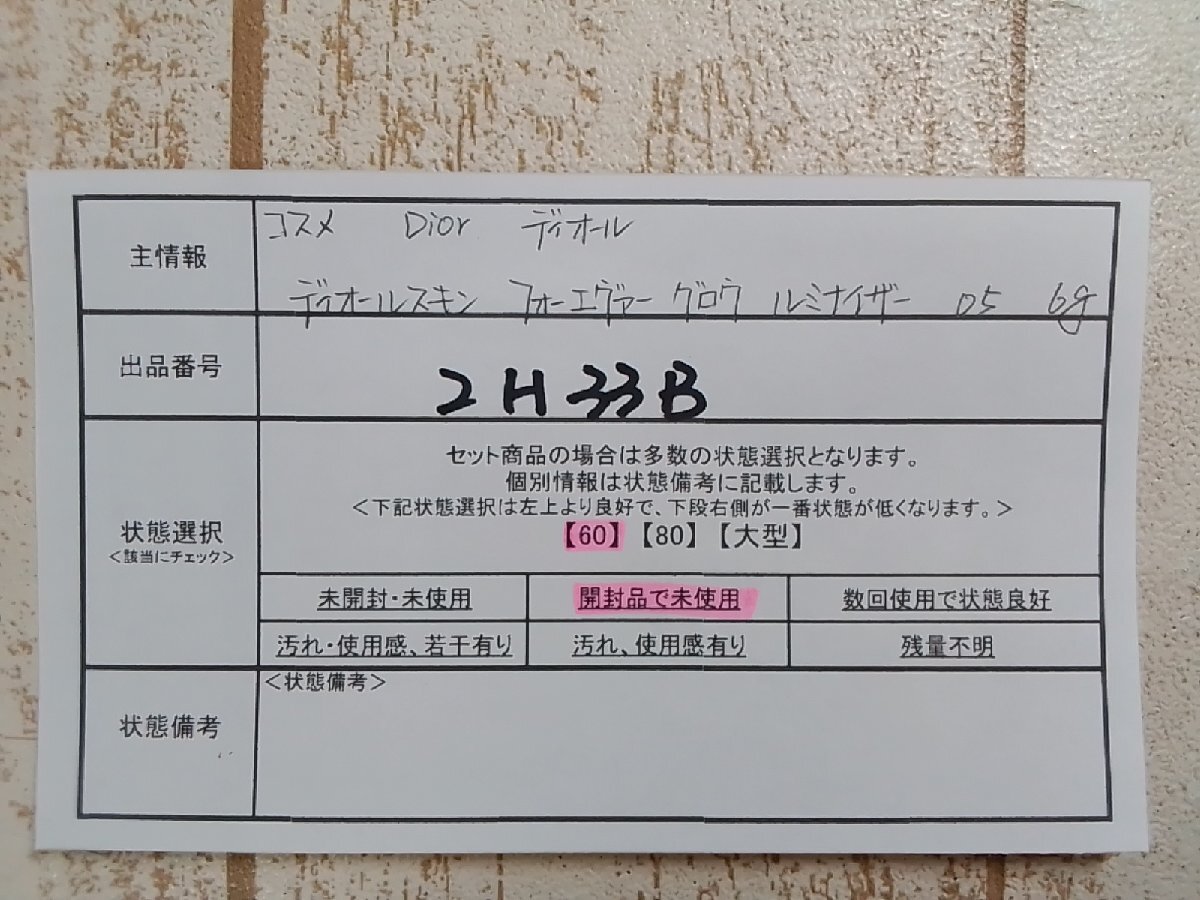 主情報
コスメ Dior ディオール
ディオールスキン フォーエヴァー グロウ ルミナイザー 05 6g
出品番号
2H33B
状態選択
<該当にチェック>
セット商品の場合は多数の状態選択となります。
個別情報は状態備考に記載します。
<下記状態選択は左上より良好で、下段右側が一番状態が低くなります。>
【60】【80】【大型】
未開封・未使用 開封品で未使用 数回使用で状態良好
汚れ・使用感、若干有り 汚れ、使用感有り 残量不明
状態備考
<状態備考>